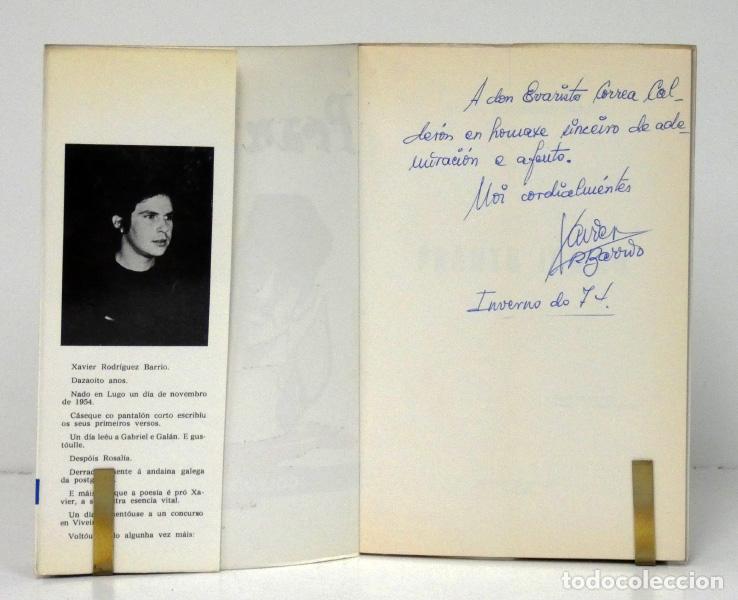 Xavier Rodríguez Barrio.
Dazaoito anos.
Nado en Lugo un día de novembro
de 1954.
Cáseque co pantalón corto escribíu
os seus primeiros versos.
Un día leéu a Gabriel e Galán. E gus-
tóulle.
Despóis Rosalía.
á andaina galega
da
E que a poesia é pró Xa-
vier, a esencia vital.
Un a un concurso
en
algunha vez máis:
A don Evaristo Correa Cal-
derón en homaxe sinceiro de ade-
miración e afeuto.
Moi cordialmentes
Xavier
R Barrio
Inverno do 74.
todocoleccion